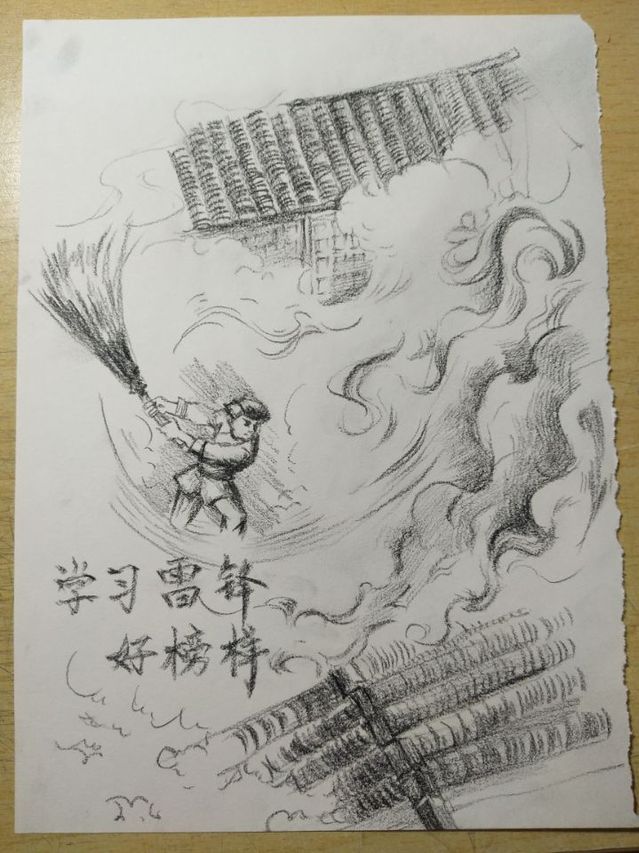 学习雷锋
好榜样